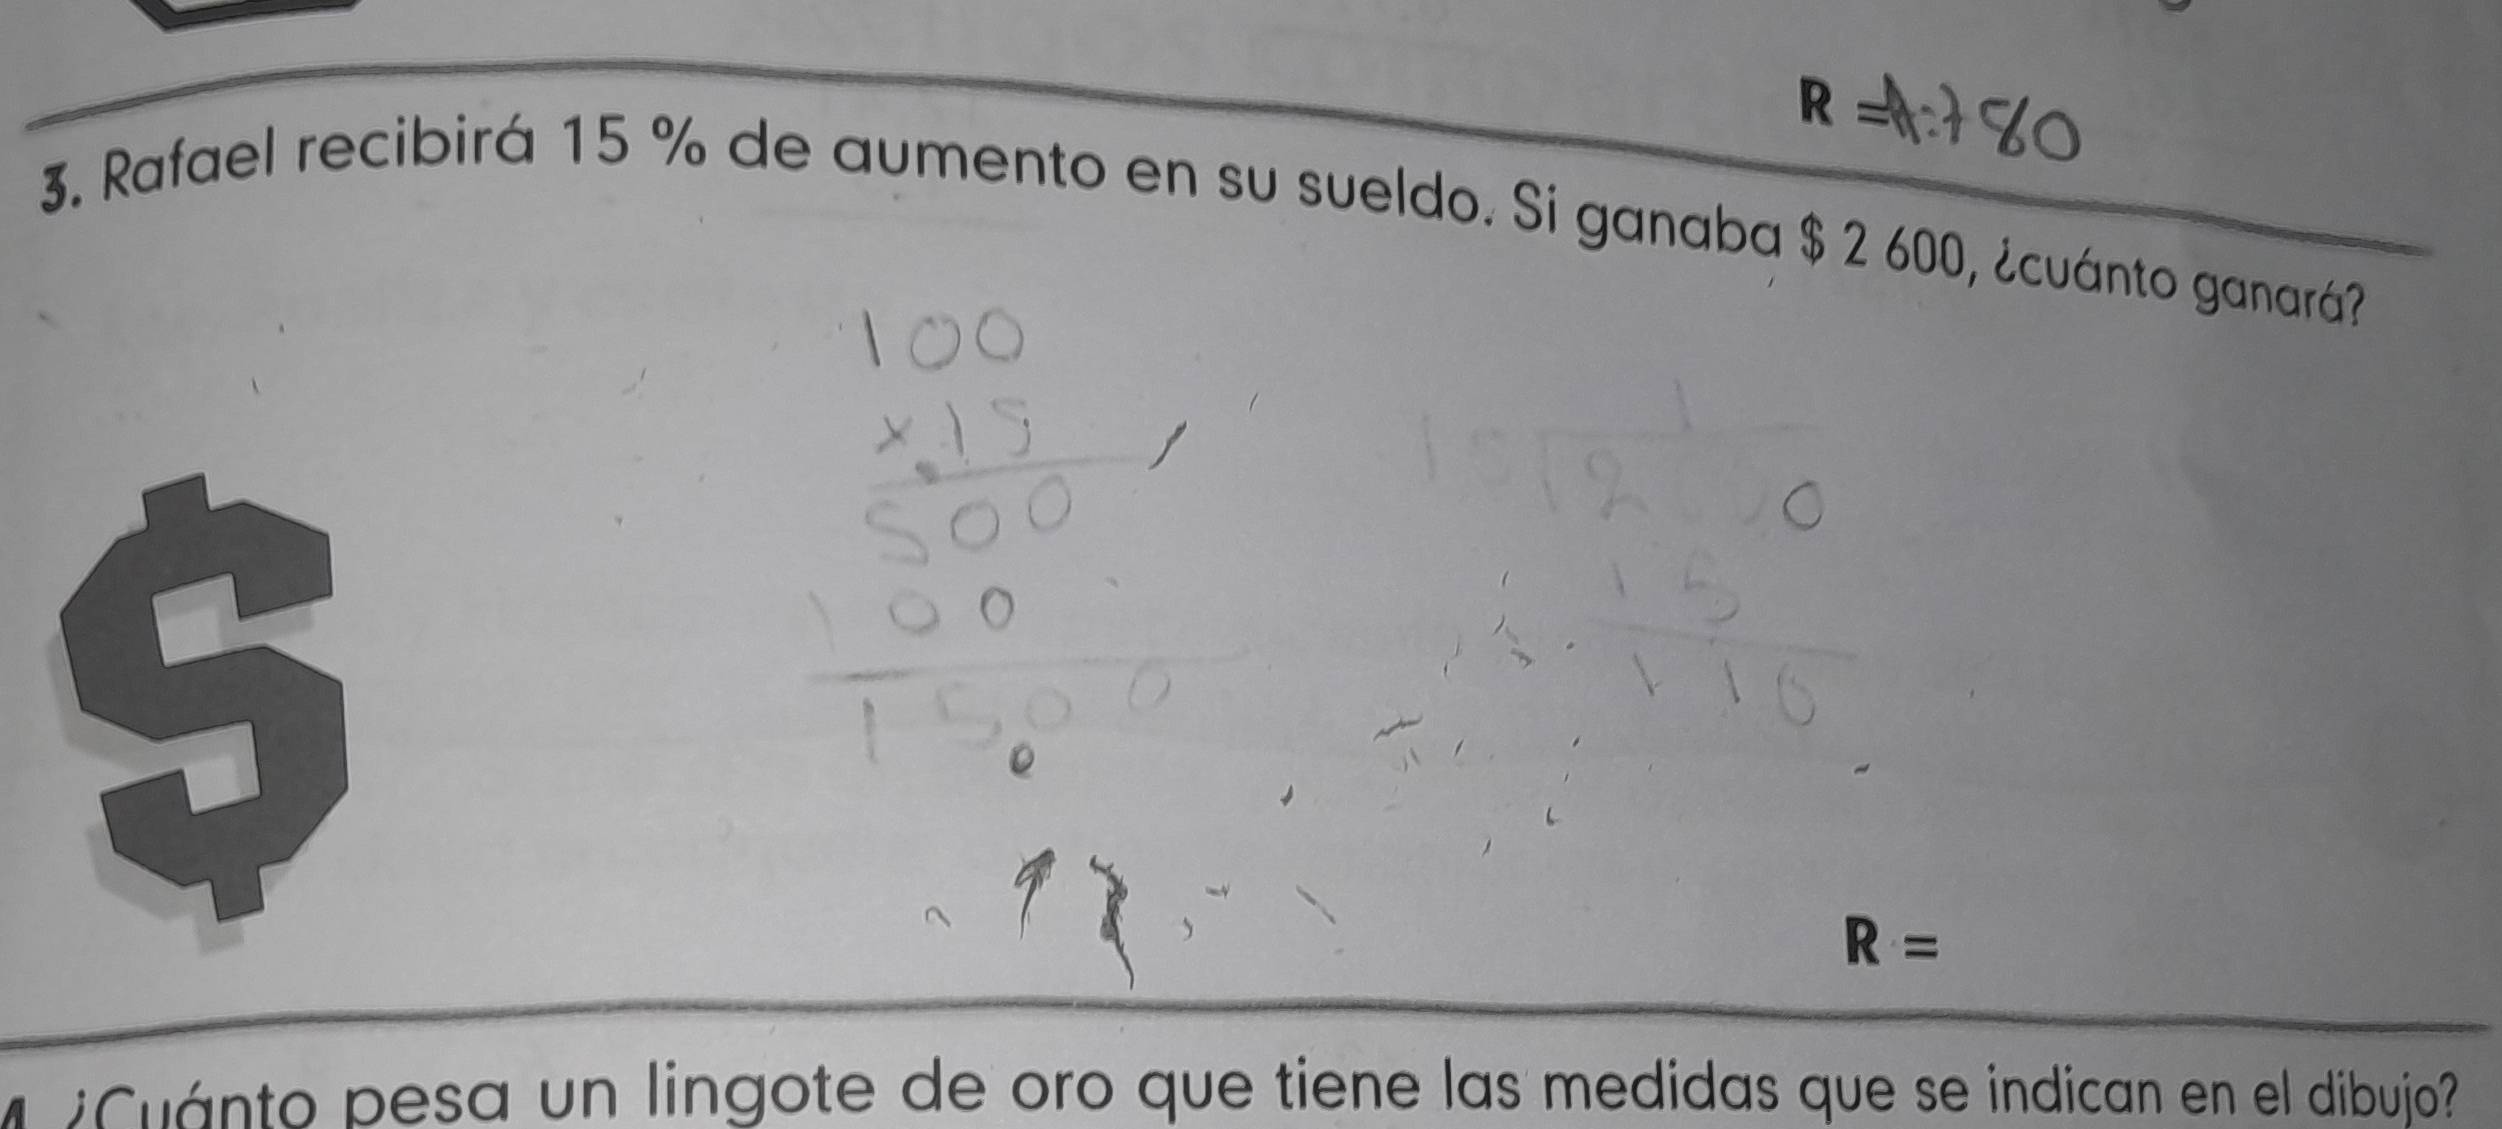 R =
80
3. Rafael recibirá 15 % de aumento en su sueldo. Si ganaba $ 2 600, ¿cuánto ganará?
100
x.15
500
100
1500
15
1
2 0
15
110
$
R =
4. ¿Cuánto pesa un lingote de oro que tiene las medidas que se indican en el dibujo?